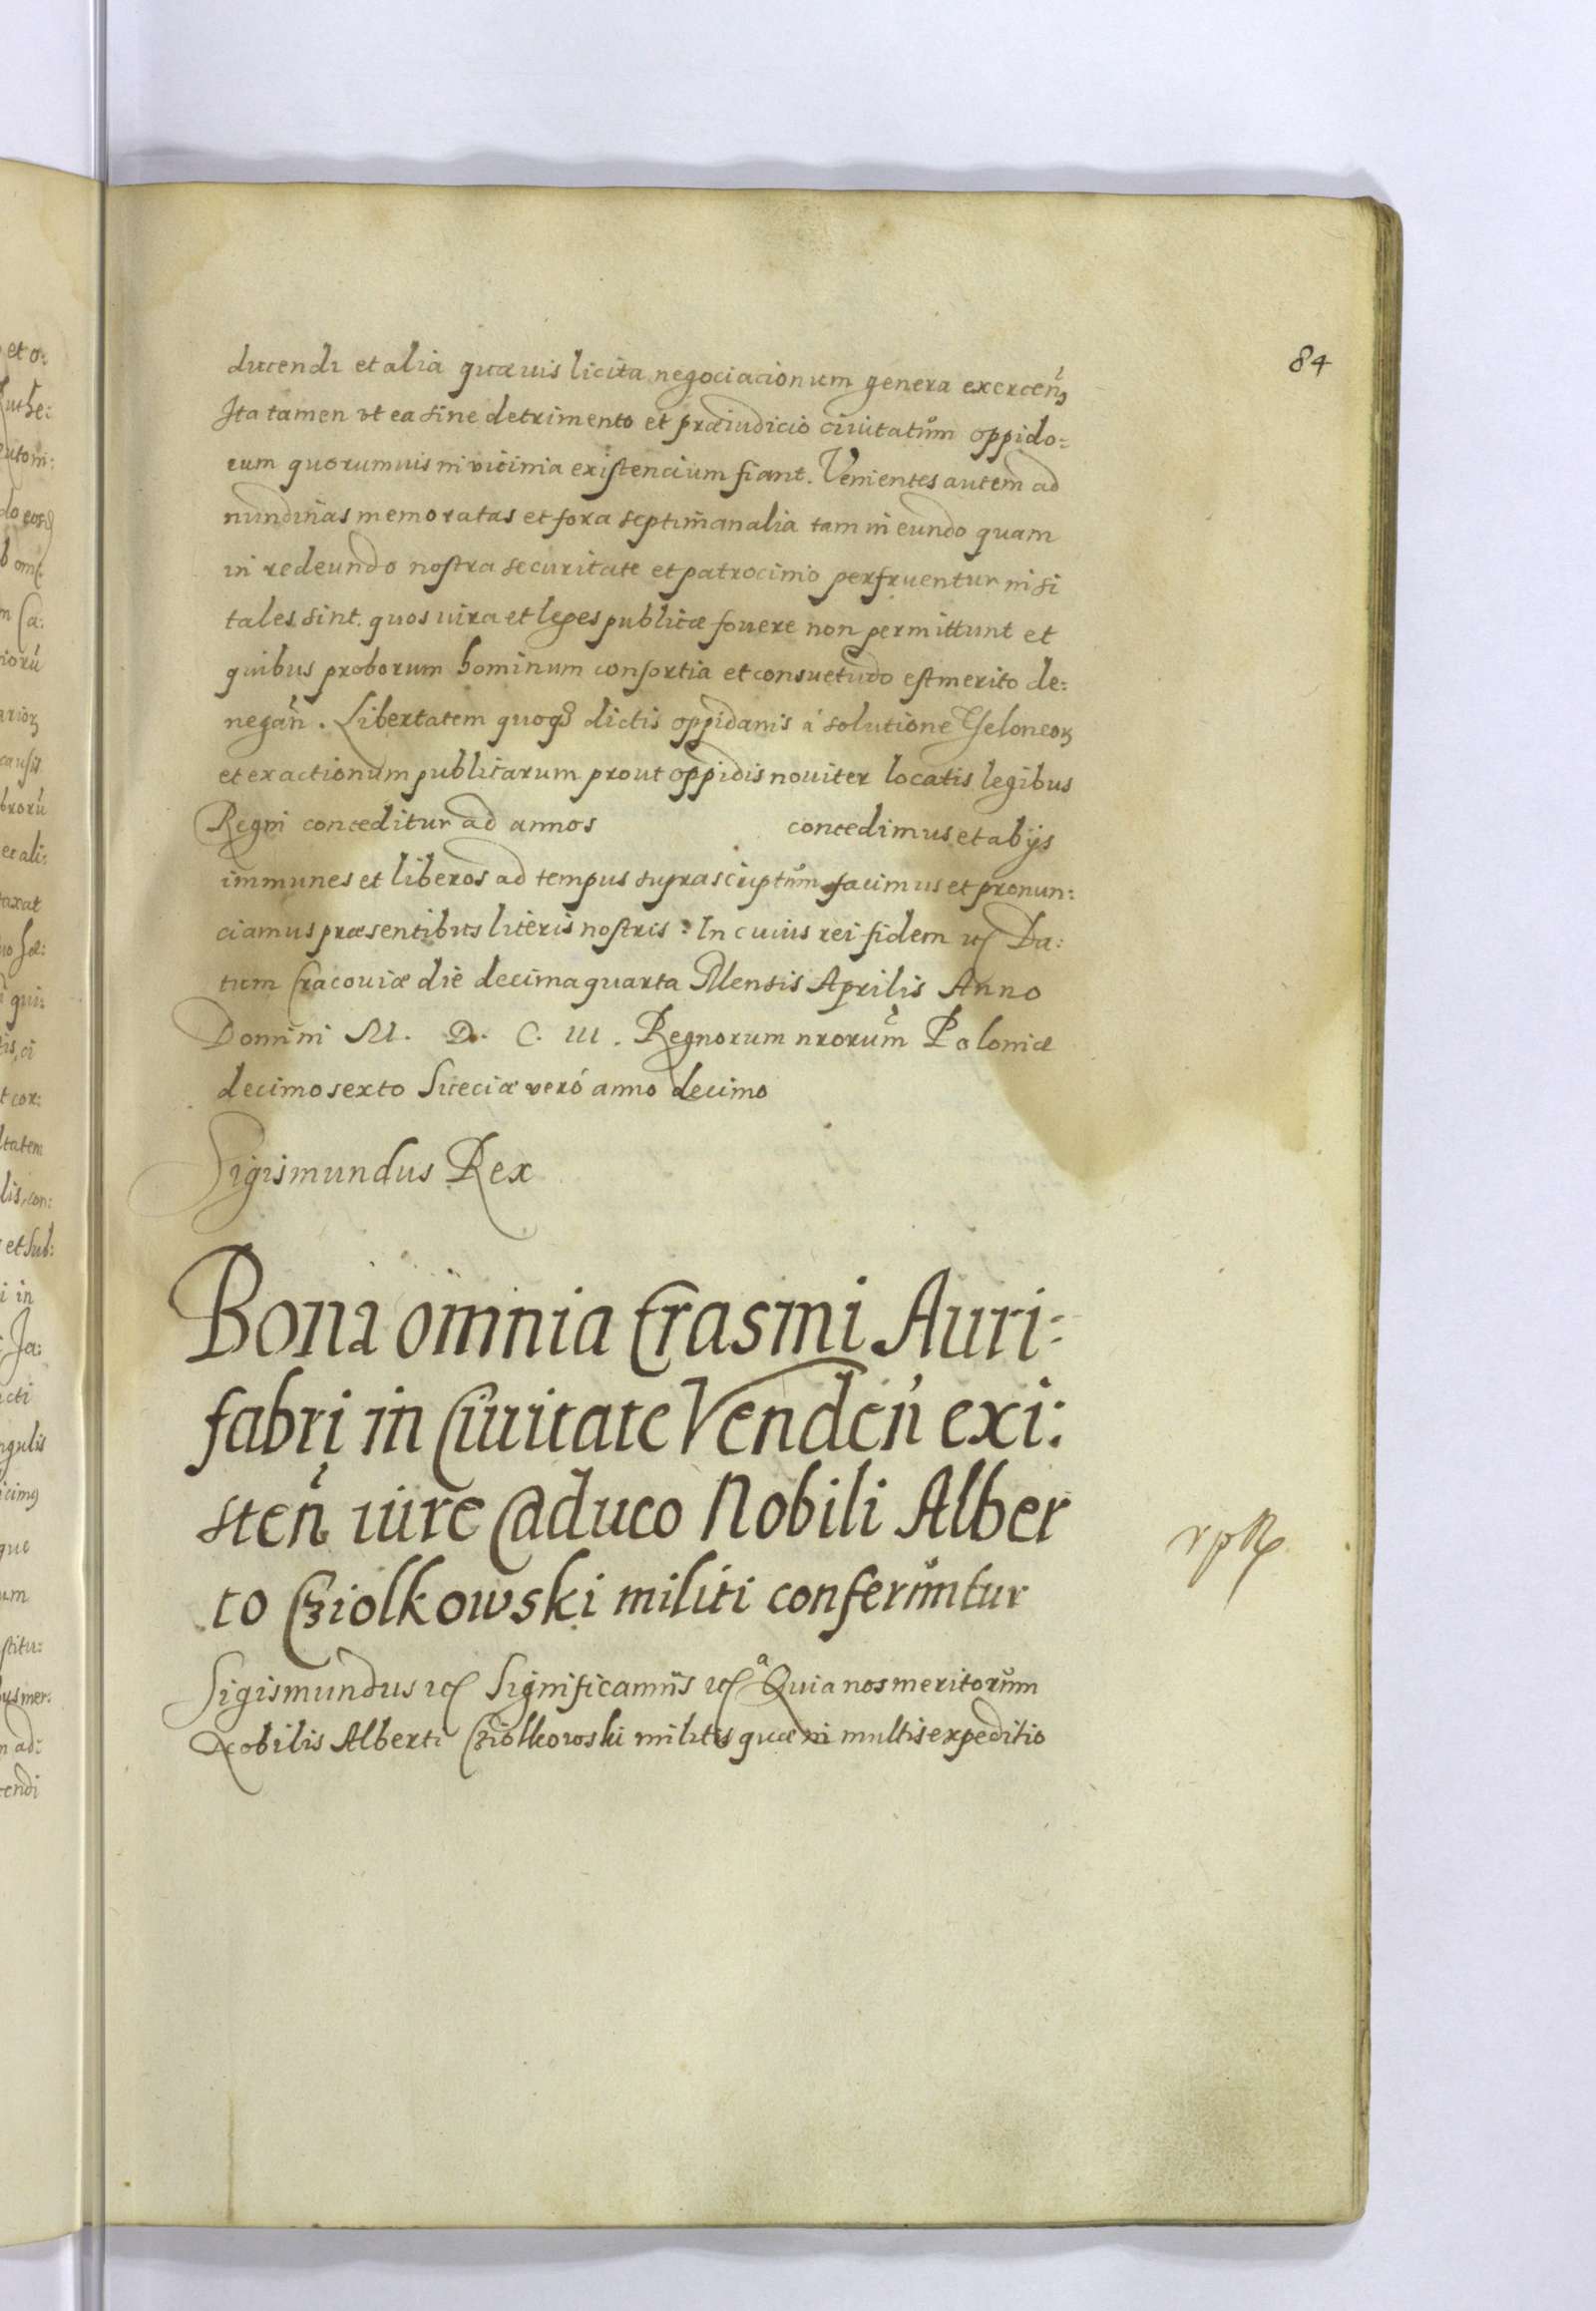 84
ducendi et alia quæuis licita negociacionum genera exercen̄
Ita tamen vt ea sine detrimento et præiudicio ciuitatum oppido=
rum quorumuis in vicinia existencium fiant. Venientes autem ad
nundinas memoratas et fora septimanalia tam in eundo quam
in redeundo nostra securitate et patrocinio perfruentur nisi
tales sint. quos iura et leges publicæ fouere non permittunt et
quibus proborum hominum consortia et consuetudo est merito de:
negan̄. Libertatem quoqȝ dictis oppidanis á solutione Theloneoꝝ
et exactionum publicarum prout oppidis nouiter locatis legibus
Regni conceditur ad annos concedimus et ab ijs
immunes et liberos ad tempus suprascriptum facimus et pronun:
ciamus præsentibus literis nostris: In cuius rei fidem etc Da:
tum Cracouiæ die decima quarta Mensis Aprilis Anno
Domini M. D. C. III. Regnorum nrorum Poloniæ
decimo sexto Sueciæ veró anno decimo
Sigismundus Rex
Bona omnia Erasmi Auri:
fabri in Ciuitate Venden̄ exi:
sten̄ iure Caduco Nobili Alber
to Cziolkowski militi conferuntur
Sigismundus etc Significamus etc ᵃ Quia nos meritorum
Nobilis Alberti Cziolkowski militis quæ in multis expeditio